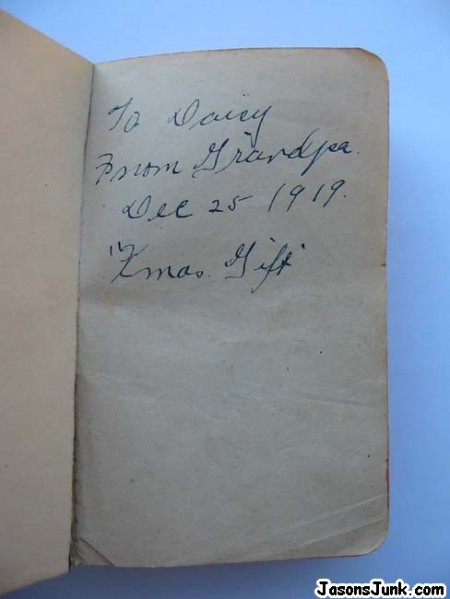 To Daisy
From Grandpa.
Dec 25 1919.
"Xmas Gift"
JasonsJunk.com